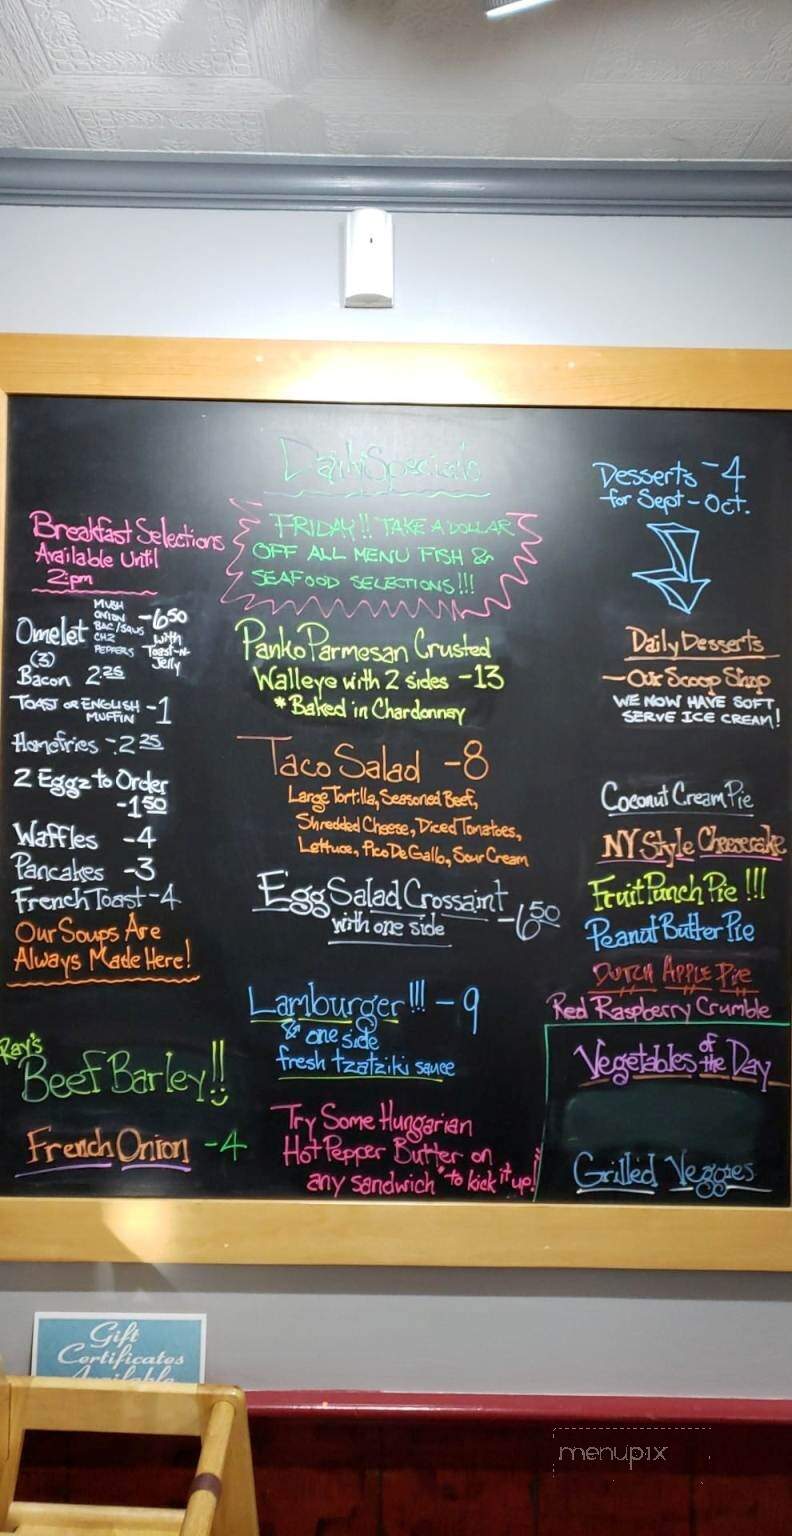 Daily Specials
FRIDAY!! TAKE A DOLLAR
OFF ALL MENU FISH &
SEAFOOD SELECTIONS!!!
Breakfast Selections
Available Until
2:pm
Omelet
(3)
MUSH
ONION
BAC/SAUS
CHZ
PEPPERS
-6 50
with
Toast-n-
Jelly
Bacon 2.25
TOAST OR ENGLISH
MUFFIN -1
Homefries - 2 25
2 Eggz to Order
-1 50
Waffles -4
Pancakes -3
French Toast -4
Our Soups Are
Always Made Here!
Ray's
Beef Barley!!
French Onion -4
Panko Parmesan Crusted
Walleye with 2 sides -13
*Baked in Chardonnay
Taco Salad -8
Large Tortilla, Seasoned Beef,
Shredded Cheese, Diced Tomatoes,
Lettuce, Pico De Gallo, Sour Cream
Egg Salad Crossaint
with one side -6 50
Lamburger!!! -9
& one side
fresh tzatziki sauce
Try Some Hungarian
Hot Pepper Butter on
any sandwich "to kick it up!"
Desserts -4
for Sept-Oct.
Daily Desserts
-Our Scoop Shop
WE NOW HAVE SOFT
SERVE ICE CREAM!
Coconut Cream Pie
NY Style Cheesecake
Fruit Punch Pie!!!
Peanut Butter Pie
DUTCH APPLE Pie
Red Raspberry Crumble
Vegetables of the Day
Grilled Veggies
Gift
Certificates
Available
menupix